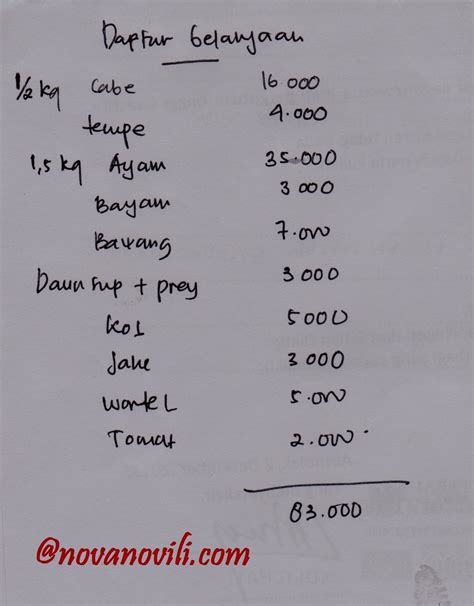 Daftar belanjaan
1/2 kg Cabe 16.000
tempe 4.000
1,5 kg Ayam 35.000
Bayam 3 000
Bawang 7.000
Daun sup + prey 3 000
Kol 5000
Jahe 3.000
Wortel 5.000
Tomat 2.000
83.000
@novanovili.com